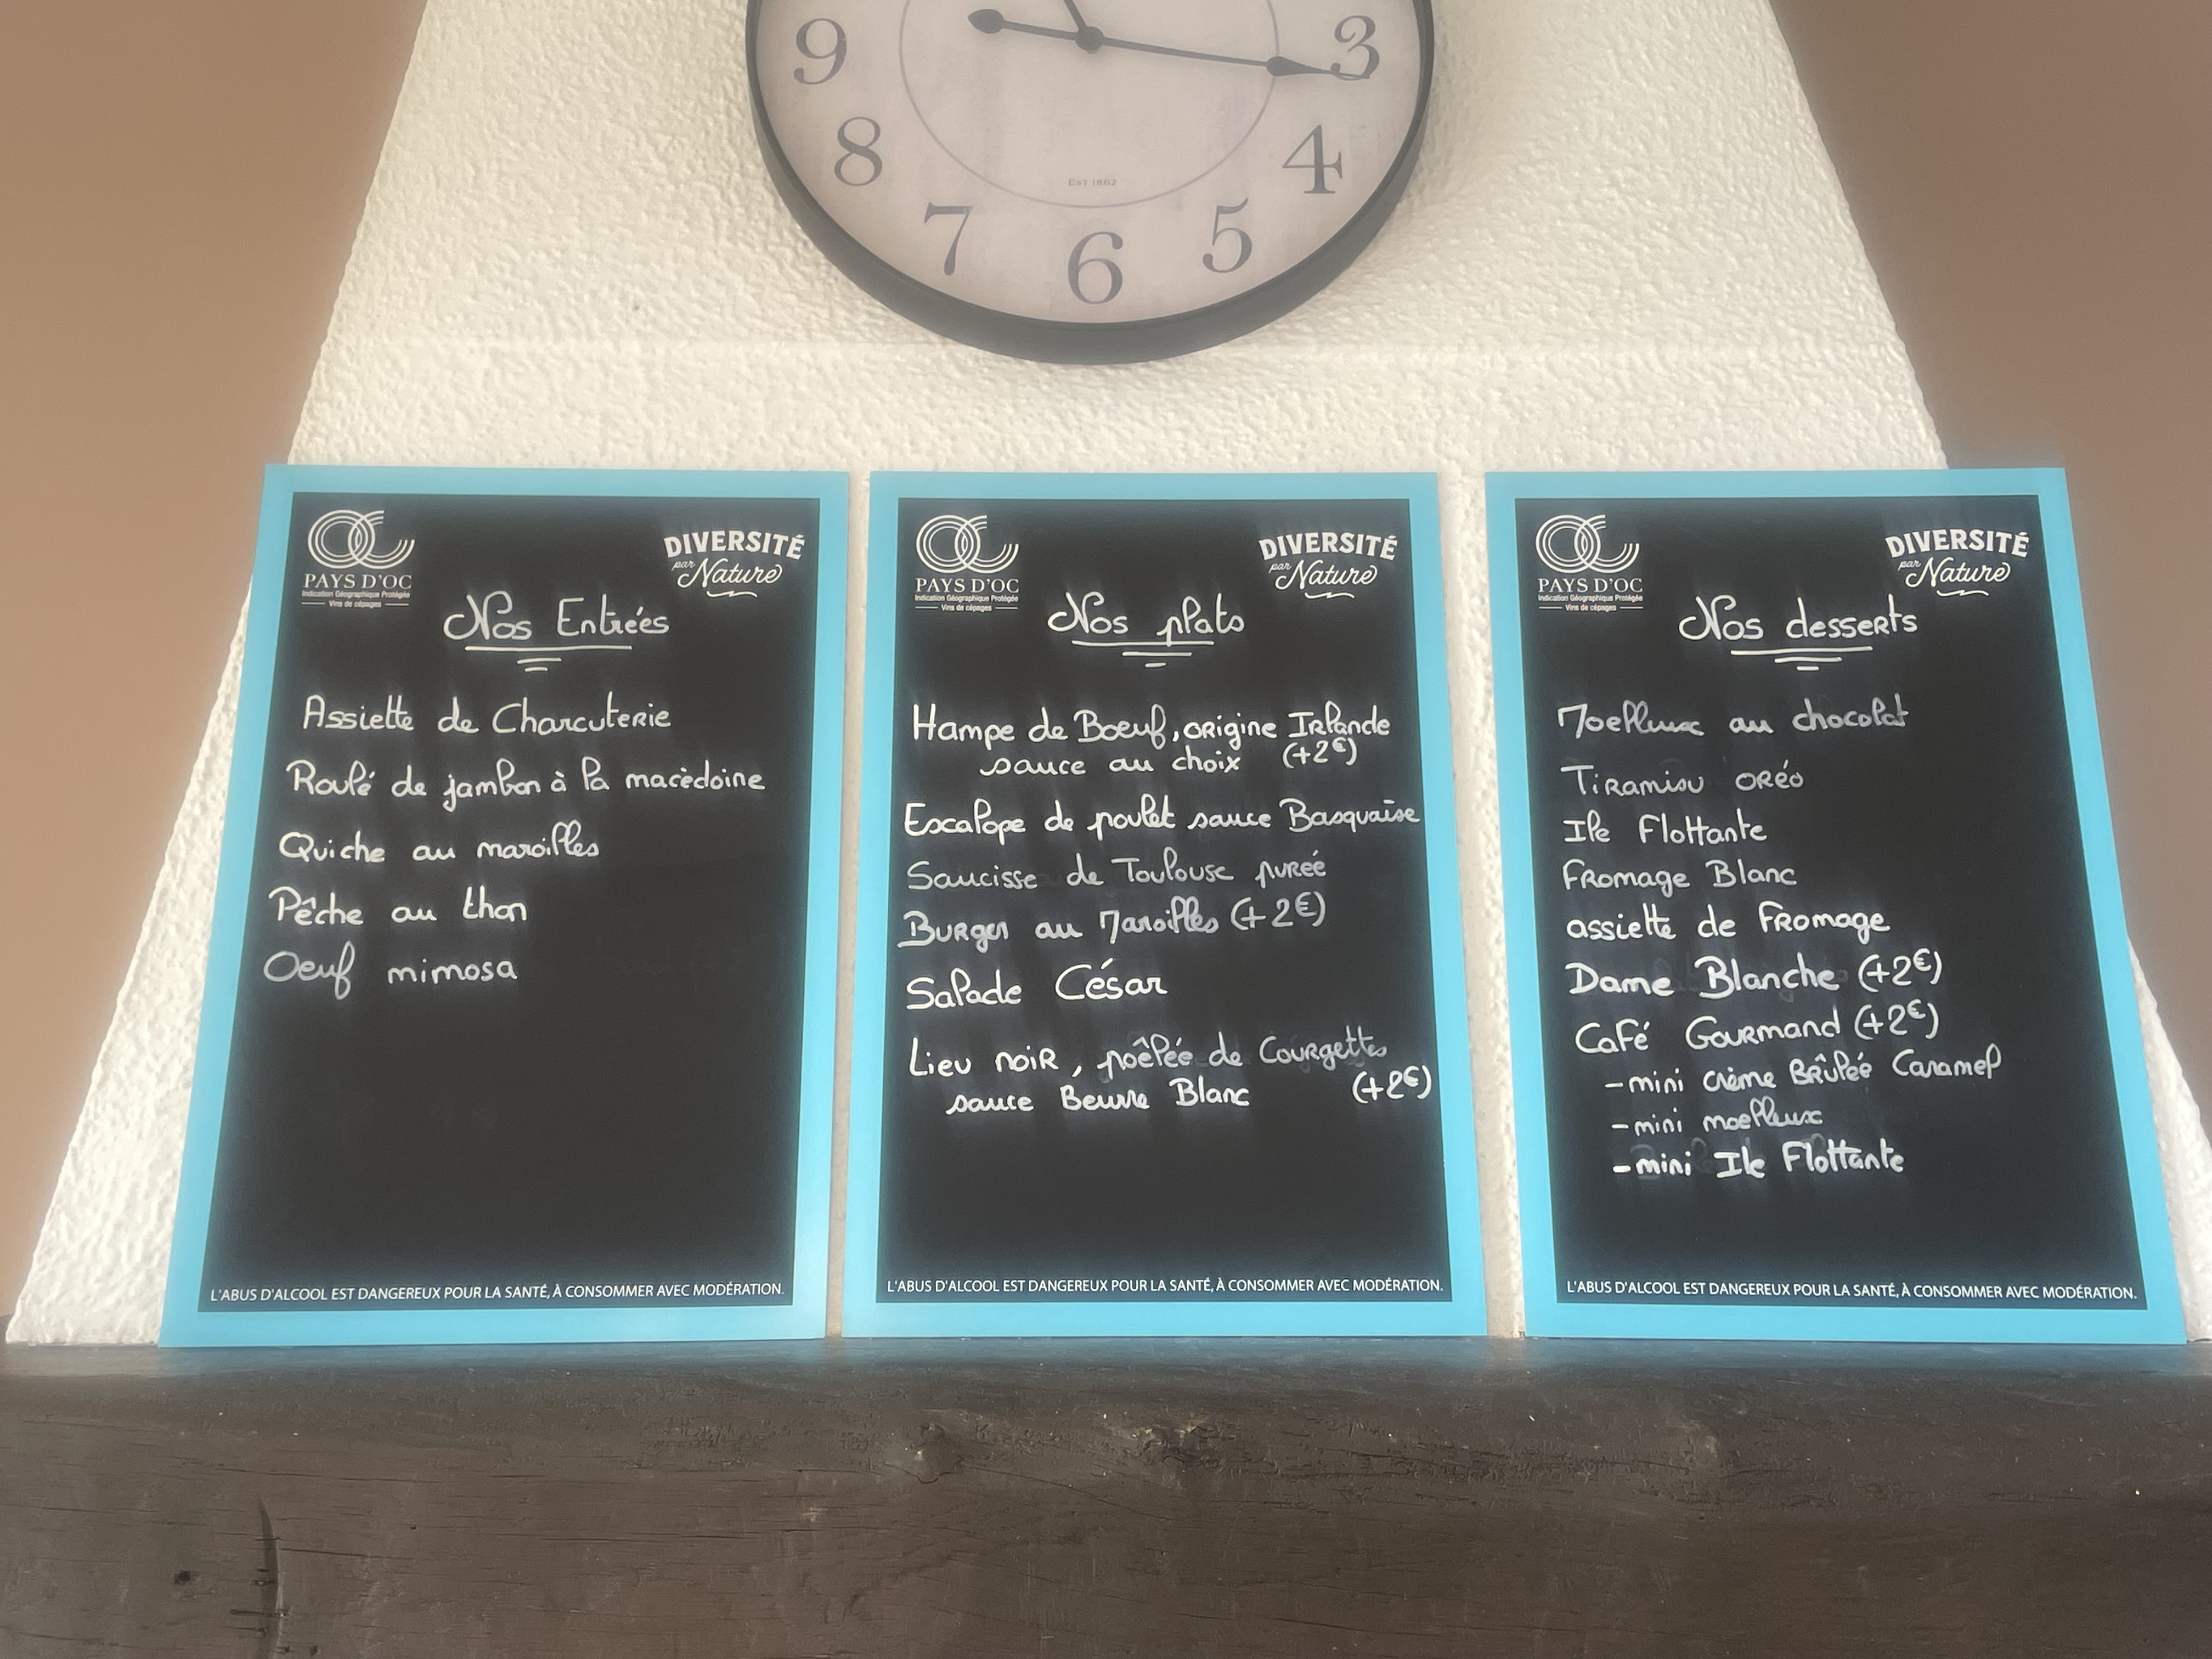 9
3
8
4
7
5
6
EST 1862
PAYS D'OC
Indication Géographique Protégée
Vins de cépages
DIVERSITÉ
par Nature
Nos Entrées
Assiette de Charcuterie
Roulé de jambon à la macèdoine
Quiche au maroilles
Pêche au thon
Oeuf mimosa
L'ABUS D'ALCOOL EST DANGEREUX POUR LA SANTÉ, À CONSOMMER AVEC MODÉRATION.
PAYS D'OC
Indication Géographique Protégée
Vins de cépages
DIVERSITÉ
par Nature
Nos plats
Hampe de Boeuf, origine Irlande
sauce au choix (+2€)
Escalope de poulet sauce Basquaise
Saucisse de Toulouse purée
Burger au Maroilles (+2€)
Salade César
Lieu noir, poêlée de Courgettes
sauce Beurre Blanc (+2€)
L'ABUS D'ALCOOL EST DANGEREUX POUR LA SANTÉ, À CONSOMMER AVEC MODÉRATION.
PAYS D'OC
Indication Géographique Protégée
Vins de cépages
DIVERSITÉ
par Nature
Nos desserts
Moelleux au chocolat
Tiramisu oréo
Ile Flottante
Fromage Blanc
assiette de Fromage
Dame Blanche (+2€)
Café Gourmand (+2€)
-mini crème Brûlée Caramel
-mini moelleux
-mini Ile Flottante
L'ABUS D'ALCOOL EST DANGEREUX POUR LA SANTÉ, À CONSOMMER AVEC MODÉRATION.